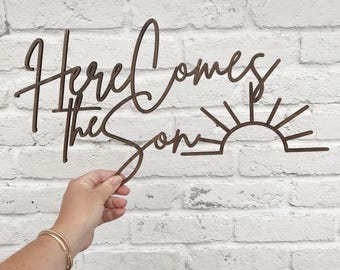 Here Comes
the Son